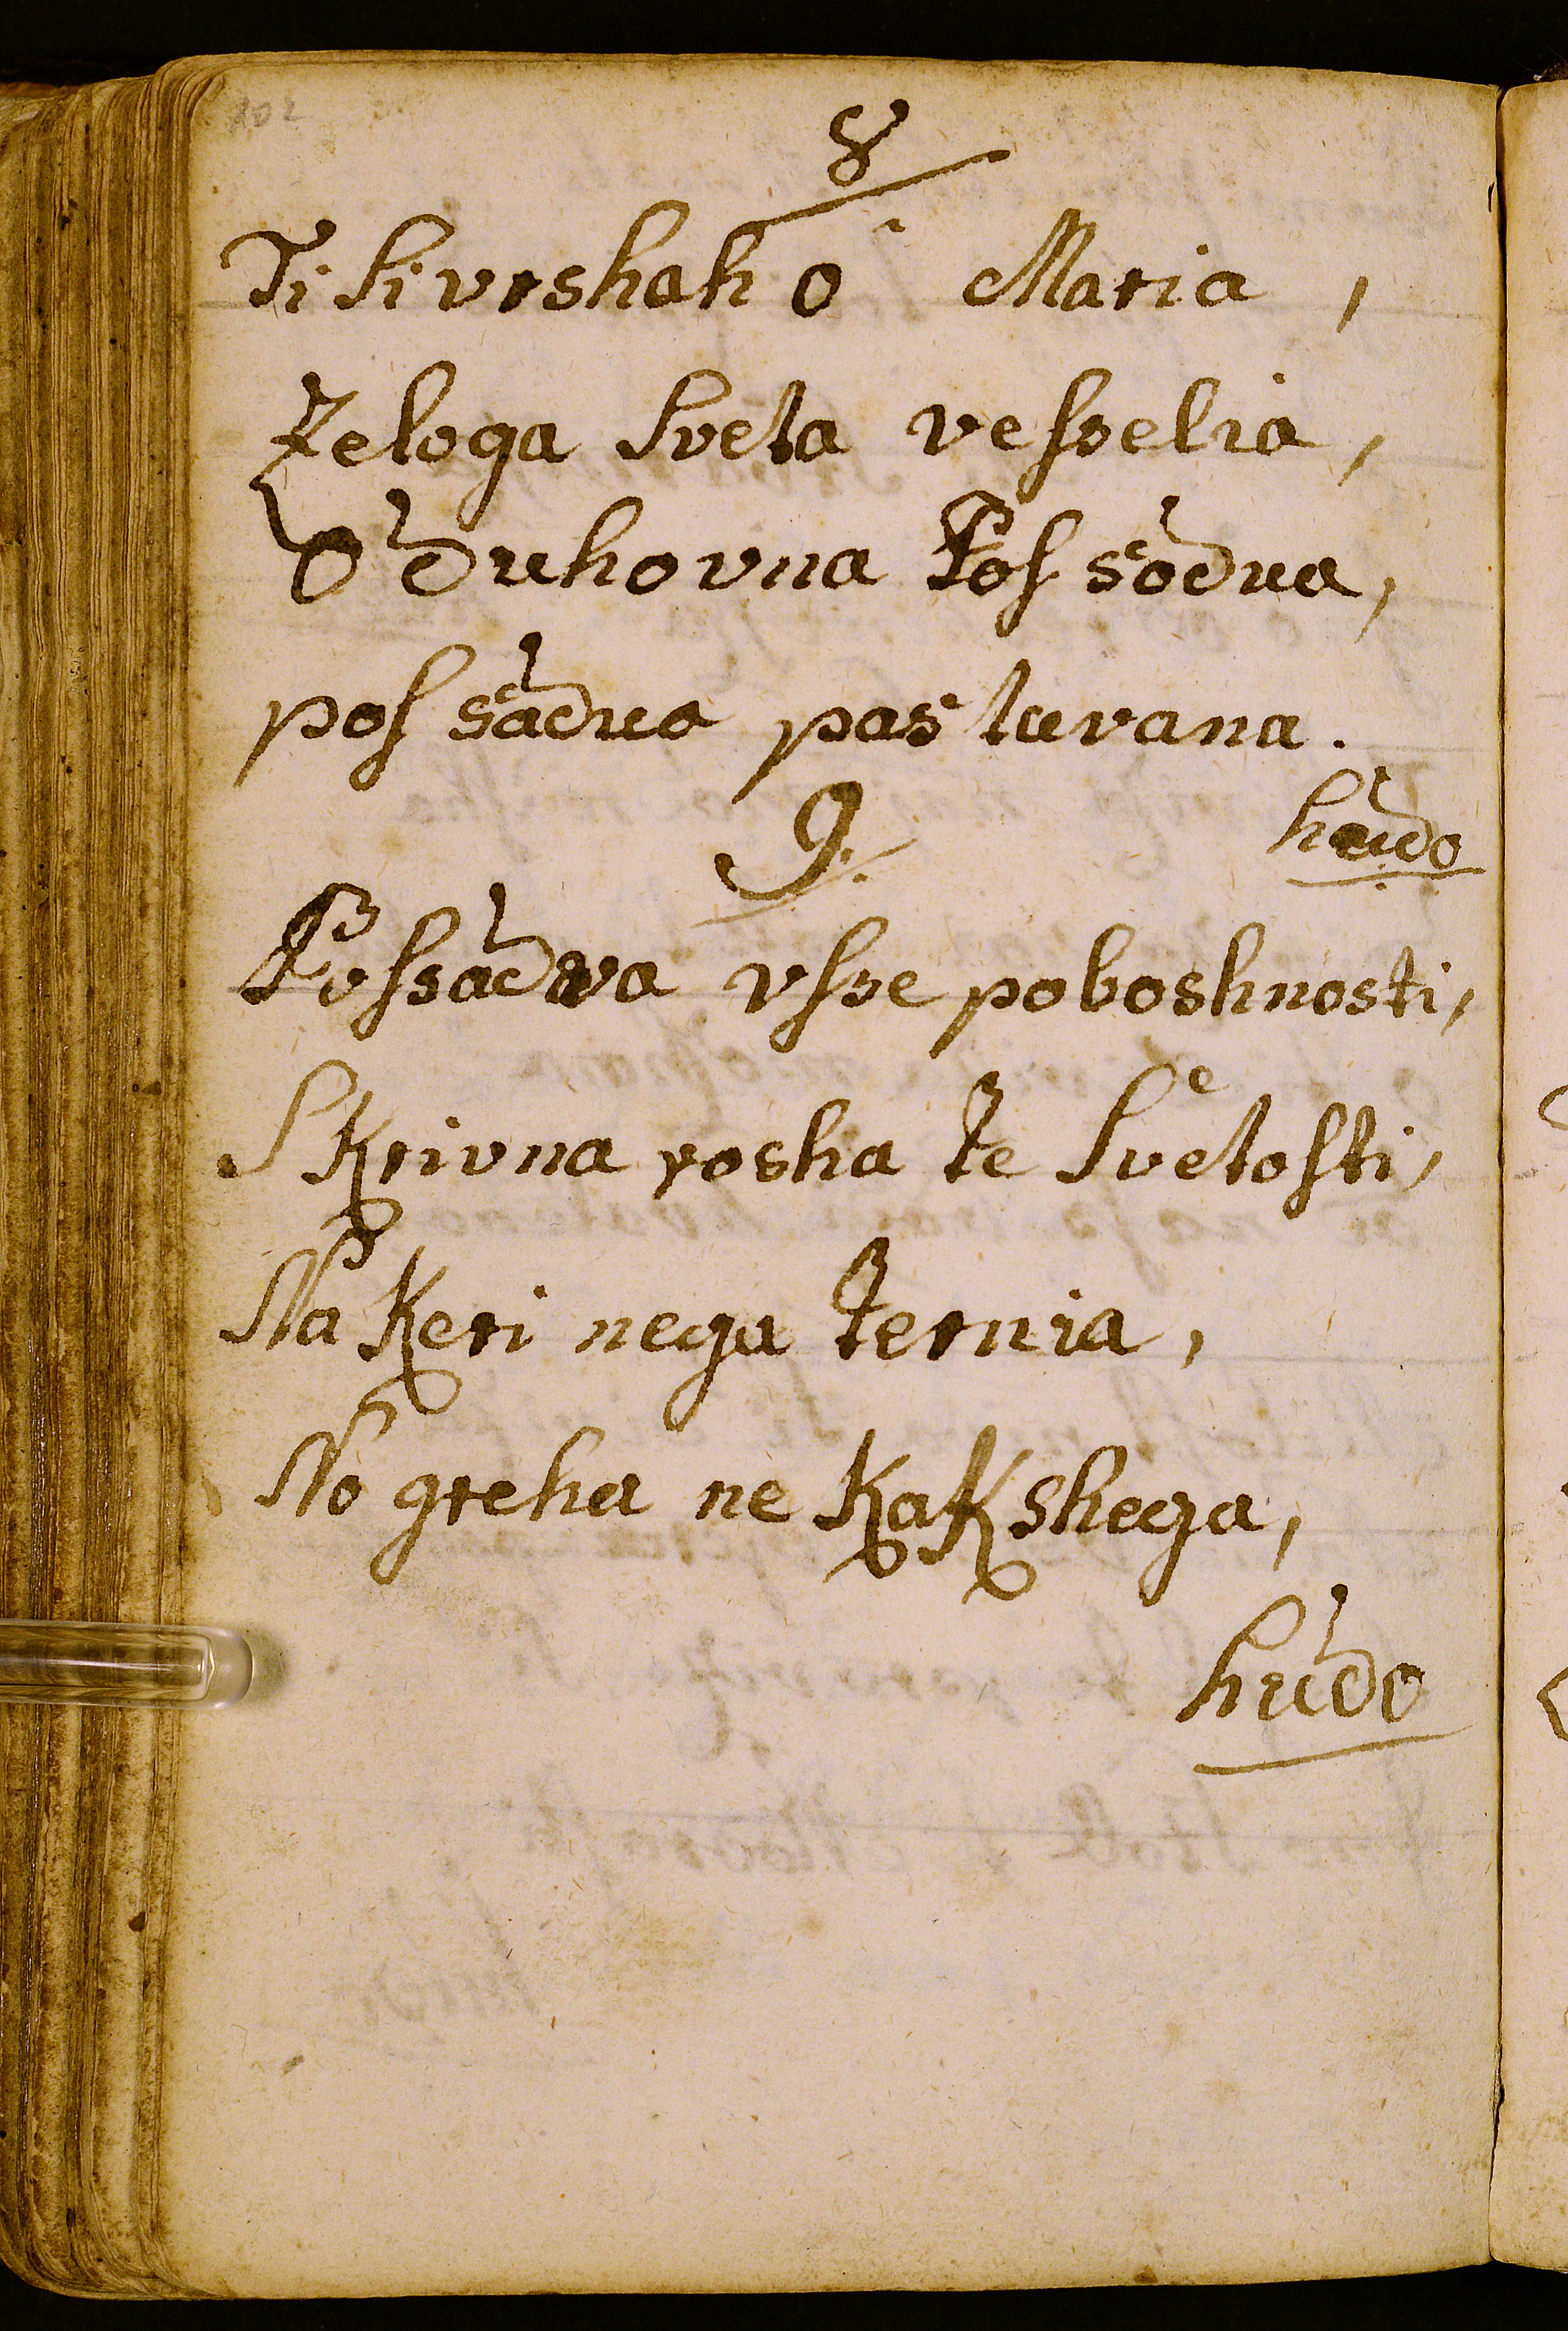 202
8
Ti ſi vrshah o Maria,
Zeloga ſveta veſselia,
O duhovna Poſsodva,
poſsadva poshtuvana.
hudo
9.
Poſsadva vſse poboshnosti,
Skrivna rosha te ſvetoſti,
Na Keri nega ternia,
No greha ne KaKshega,
hudo